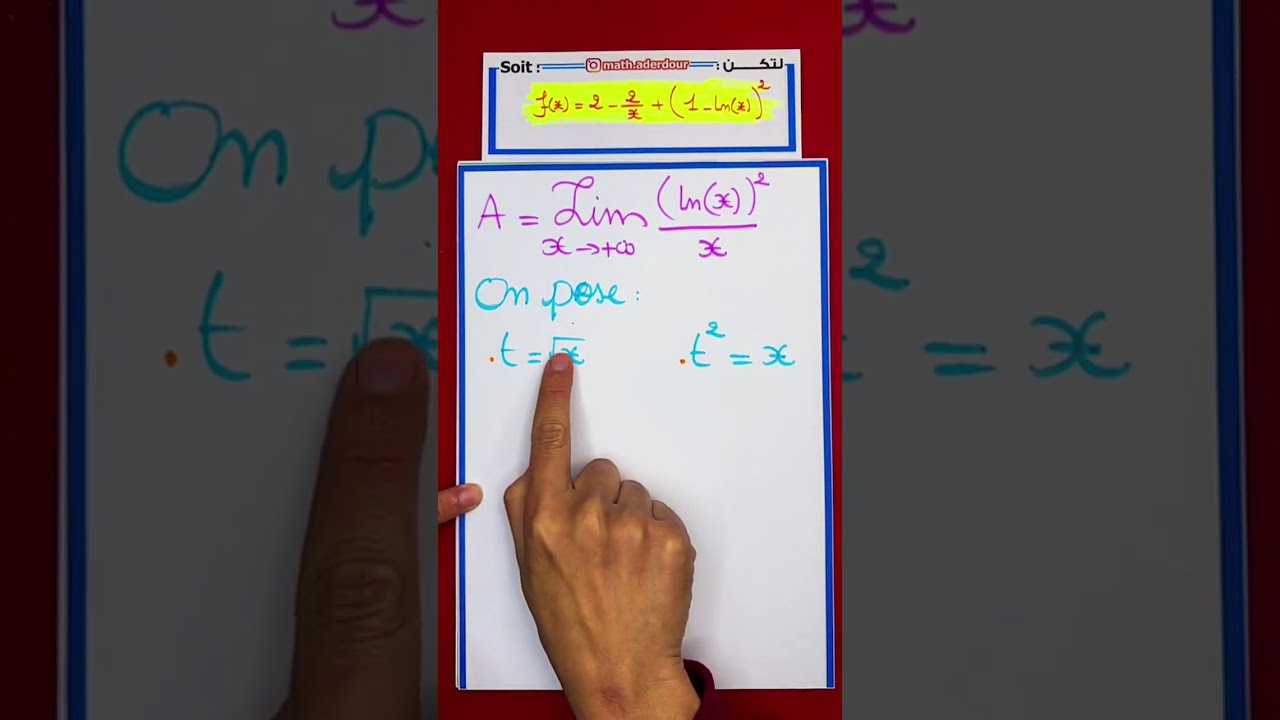 Soit : math.aderdour لتكن :
f(x) = 2 - 2/x + (1 - ln(x))²
A = Lim (ln(x))² / x
x → +∞
On pose :
. t = √x . t² = x